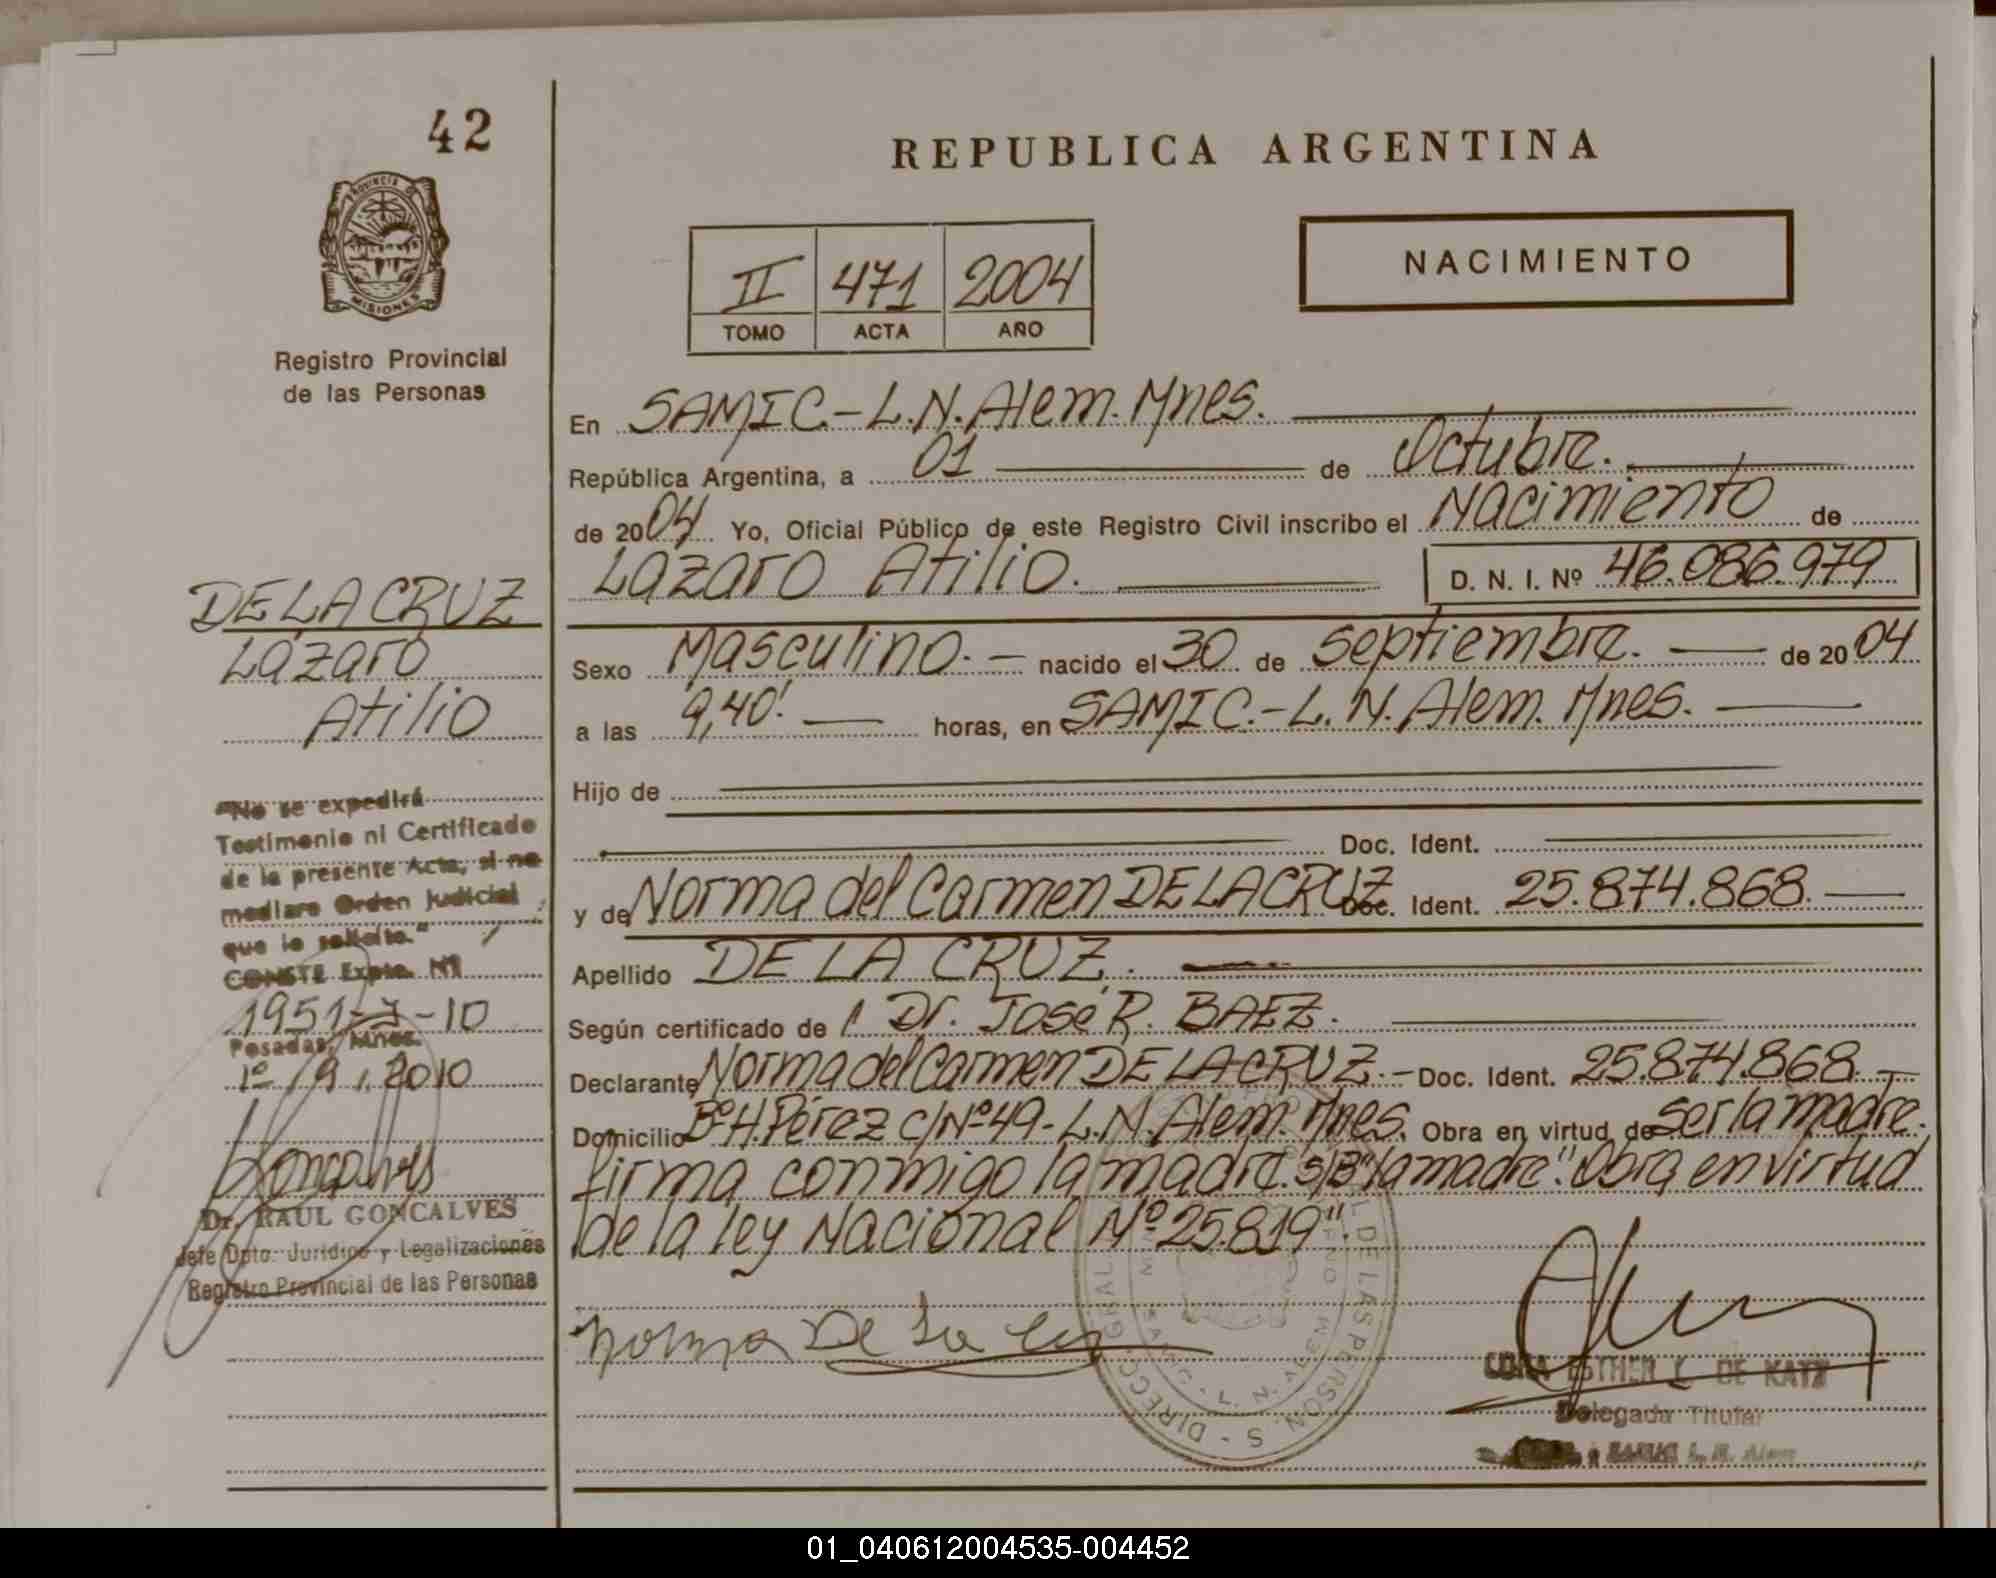 42
PROVINCIA DE
MISIONES
Registro Provincial
de las Personas
DE LA CRUZ
Lázaro
Atilio
"No se expedirá
Testimonio ni Certificado
de la presente Acta, si no
mediare Orden Judicial
que lo solicite."
CONSTE Expte. Nº
1951-J-10
Posadas, Mnes.
1º / 9 / 2010
Dr. RAUL GONCALVES
Jefe Dpto. Jurídico y Legalizaciones
Registro Provincial de las Personas
REPUBLICA ARGENTINA
II 471 2004
TOMO ACTA AÑO
NACIMIENTO
En SAMIC.- L.N. Alem. Mnes.
República Argentina, a 01 de Octubre.
de 2004 Yo, Oficial Público de este Registro Civil inscribo el Nacimiento de
Lázaro Atilio. D. N. I. Nº 46.086.979
Sexo Masculino. - nacido el 30 de septiembre. de 2004
a las 9,40'. horas, en SAMIC.- L. N. Alem. Mnes.
Hijo de
Doc. Ident.
y de Norma del Carmen DE LA CRUZ Doc. Ident. 25.874.868.
Apellido DE LA CRUZ.
Según certificado de Dr. José R. BAEZ.
Declarante Norma del Carmen DE LA CRUZ.- Doc. Ident. 25.874.868.-
Domicilio Bº H. Pérez C/Nº 49- L.N. Alem. Mnes. Obra en virtud de ser la madre.
firma conmigo la madre. s/B "la madre". Obra en virtud
de la ley Nacional Nº 25.819".
Norma De La Cruz
CORA ESTHER L. DE KATZ
Delegada Titular
SAMIC L. N. Alem
01_040612004535-004452